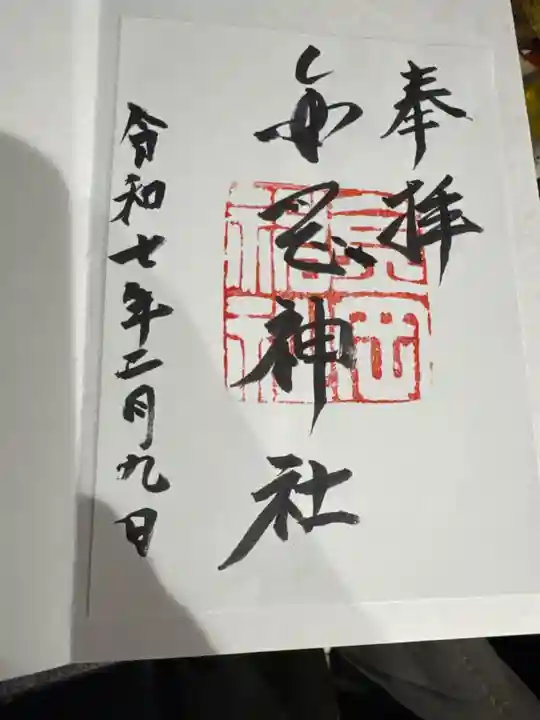 奉拝
亀岡神社
令和七年二月九日